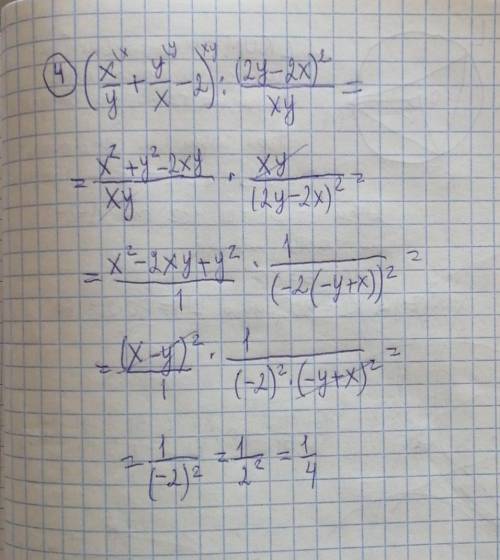 ④ (x^{\x}/y + y^{\y}/x - 2^{\xy}) : (2y-2x)²/xy =
= x²+y²-2xy/xy · xy/(2y-2x)² =
= x²-2xy+y²/1 · 1/(-2(-y+x))² =
= (x-y)²/1 · 1/(-2)²·(-y+x)² =
= 1/(-2)² = 1/2² = 1/4